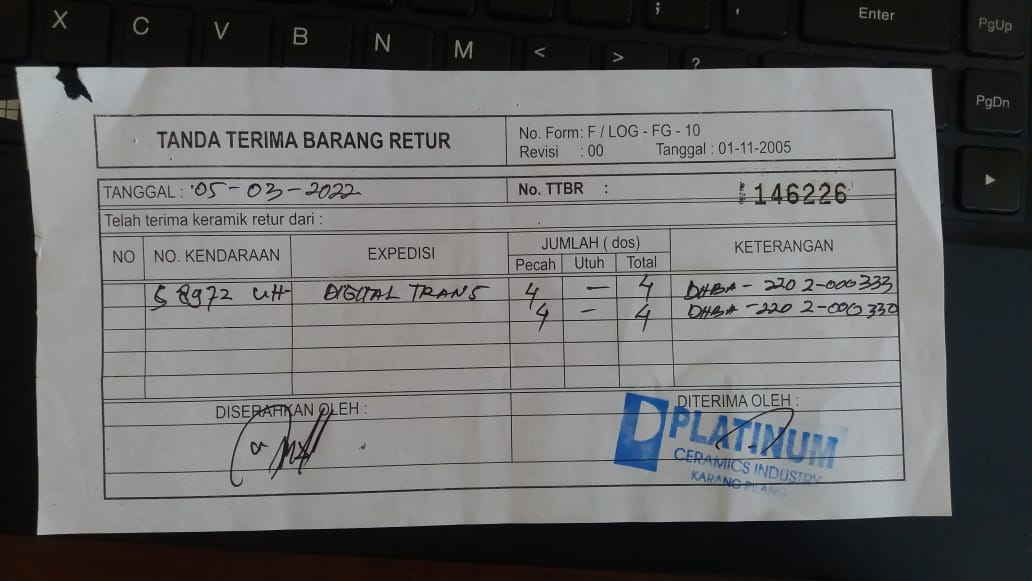 X C V B N M < > ?
; ' Enter PgUp
PgDn
TANDA TERIMA BARANG RETUR
No. Form: F / LOG - FG - 10
Revisi : 00 Tanggal : 01-11-2005
TANGGAL : 05-03-2022 No. TTBR : 146226
Telah terima keramik retur dari :
NO NO. KENDARAAN EXPEDISI JUMLAH ( dos) KETERANGAN
Pecah Utuh Total
S 8972 UH DIGITAL TRANS 4 - 4 DHBA - 220 2-000333
4 - 4 DHBA - 220 2-000330
DISERAHKAN OLEH : DITERIMA OLEH :
PLATINUM
CERAMICS INDUSTRY
KARANG PILANG